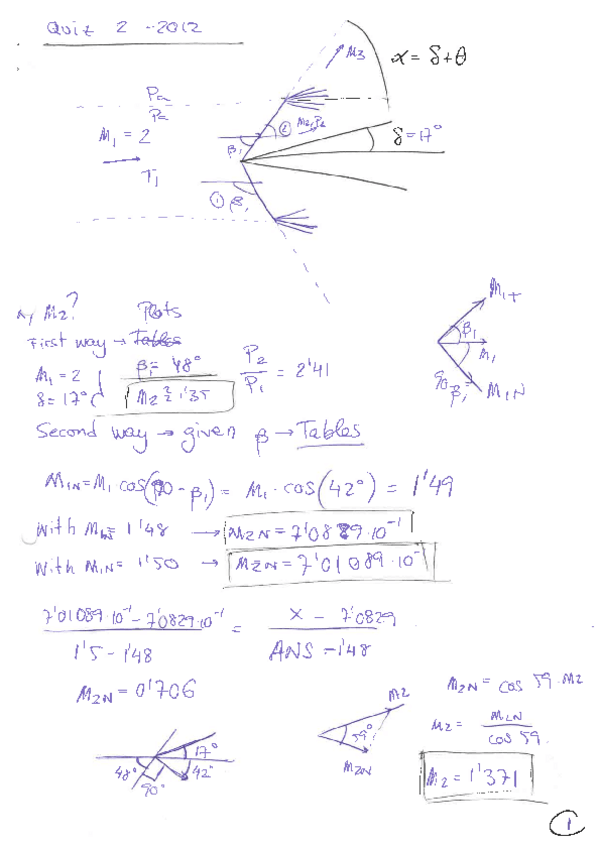 Quiz 2 - 2012
M3
α = δ+θ
Pa
Pa
M1 = 2
T1
② M2, P2
δ=17°
β1
① β1
M2?
Plots
First way → Tables
M1 = 2
δ = 17°
β1= 48°
M2 ≅ 1'35
P2
P1
= 2'41
M1T
β1
M1
90-β1
M1N
Second way → given β → Tables
M1N = M1 cos(90 - β1) = M1 · cos(42°) = 1'49
with M1N= 1'48 → M2N = 7'0829·10⁻¹
with M1N= 1'50 → M2N = 7'01089·10⁻¹
7'01089·10⁻¹ - 7'0829·10⁻¹
1'5 - 1'48
=
x - 7'0829
ANS - 1'48
M2N = 0'706
48°
90°
17°
42°
M2
59°
M2N
M2N = cos 59 · M2
M2 =
M2N
cos 59
M2 = 1'371
1